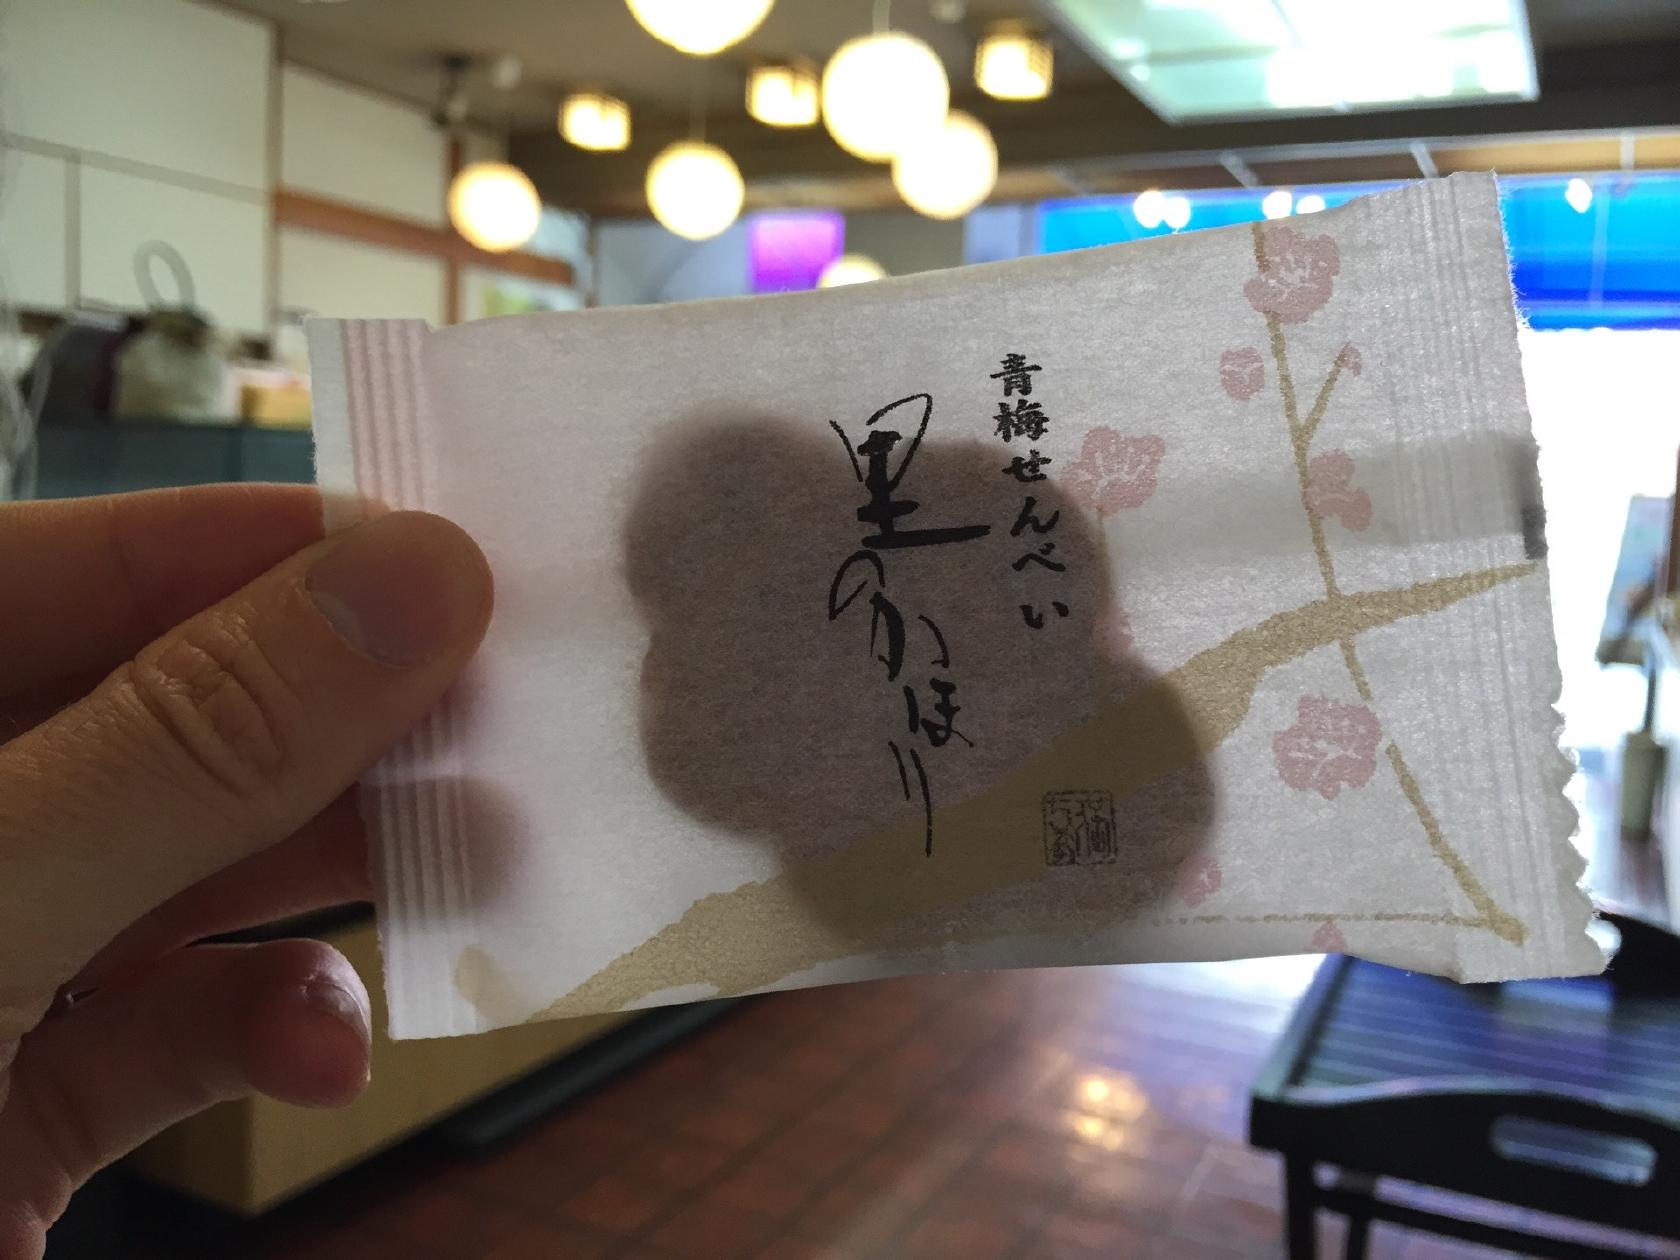 青梅せんべい
里のかほり